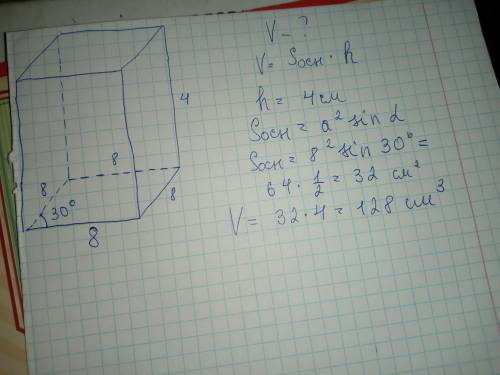 V - ?
V = Sосн · h
h = 4 см
Sосн = a² sin α
Sосн = 8² sin 30° =
64 · 1/2 = 32 см²
V = 32 · 4 = 128 см³
4
8
8
8
30°
8